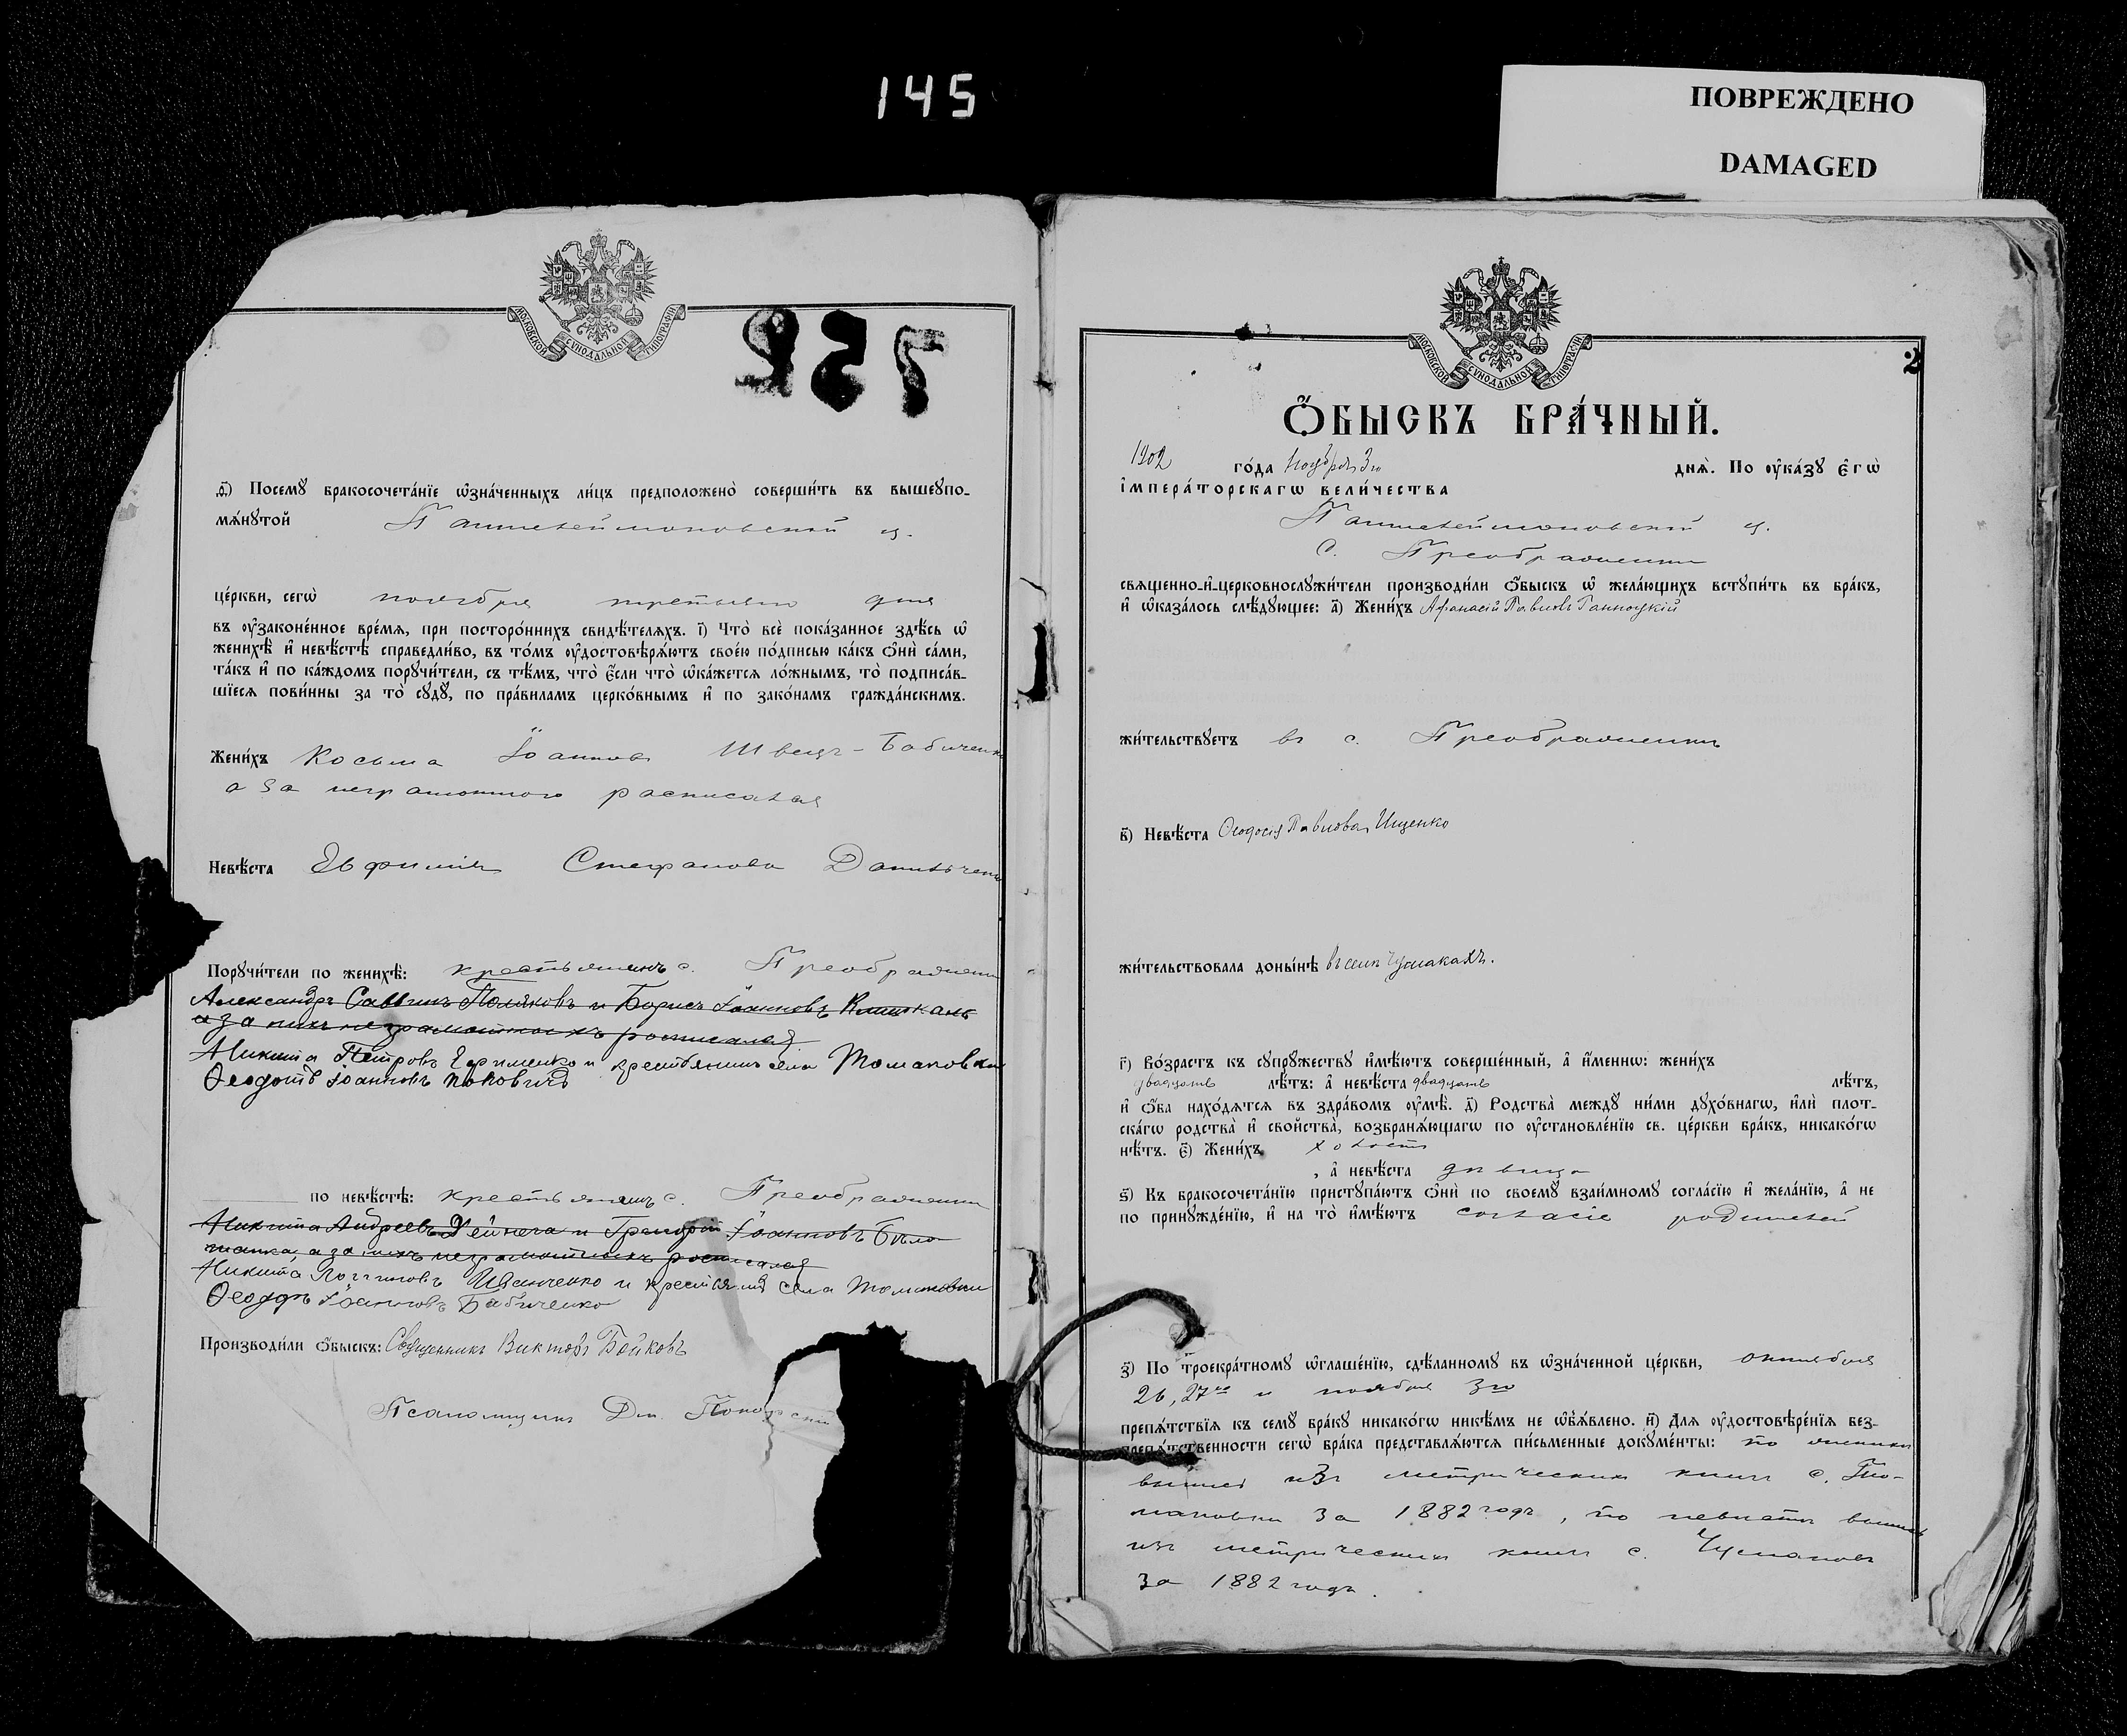 145
ПОВРЕЖДЕНО
DAMAGED
МОСКОВСКОЙ СУНОДАЛЬНОЙ ТИПОГРАФІИ
ѳ҃) Посемꙋ бракосочета́нїе ѡ҆зна́ченныхъ ли́цъ предположено̀ соверши́ть въ вышеꙋпо-
мѧ́нꙋтой Пантелеймоновской ц.
це́ркви, сегѡ̀ ноября третьяго дня
въ ᲂу҆зако́ненное вре́мѧ, при посторо́ннихъ свидѣ́телѧхъ. і҃) Что̀ всѐ пока́занное здѣ́сь ѡ҆
женихѣ̀ и҆ невѣ́стѣ справедли́во, въ то́мъ ᲂу҆достовѣрѧ́ютъ свое́ю по́дписью ка́къ ѻ҆нѝ са́ми,
та́къ и҆ по ка́ждомъ порꙋчи́тели, съ тѣ́мъ, что̀ є҆́сли что̀ ѡ҆ка́жется ло́жнымъ, то̀ подписа́в-
шїеся пови́нны за то̀ сꙋдꙋ̀, по пра́виламъ церко́внымъ и҆ по зако́намъ гражда́нскимъ.
Жени́хъ Косьма Іоанновъ Швецъ-Бабиченко
а за неграмотного расписался
Невѣ́ста Евфимія Стефанова Данильченко
Порꙋчи́тели по женихѣ̀: крестьянинъ с. Преображенки
Александръ Саввинъ Поляковъ и Борисъ Іоанновъ
а за нихъ неграмотныхъ росписался
Никита Петровъ Ефименко и крестьянинъ села Томаковки
Ѳеодотъ Іоанновъ Поповичъ
по невѣ́стѣ: крестьянинъ с. Преображенки
Никита Андреевъ Дейнега и Григорій Іоанновъ Бѣло
а за нихъ неграмотныхъ росписался
Никита Иванченко и крестьянинъ села Томаковки
Ѳеодоръ Іоанновъ Бабиченко
Производи́ли ѻ҆́быскъ: Священникъ Викторъ Бойковъ
Псаломщикъ Дм.
МОСКОВСКОЙ СУНОДАЛЬНОЙ ТИПОГРАФІИ
2
Ѻ҆БЫСКЪ БРА́ЧНЫЙ.
1902 го́да ноября 3го днѧ̀. По ᲂу҆ка́зꙋ Є҆гѡ̀
і҆мпера́торскагѡ вели́чества
Пантелеймоновской ц.
с. Преображенки
свѧщенно-и҆-церковнослꙋжи́тели производи́ли ѻ҆́быскъ ѡ҆ жела́ющихъ встꙋпи́ть въ бра́къ,
и҆ ѡ҆каза́лось слѣ́дꙋющее: а҃) Жени́хъ Афанасій Павловъ Ганноцкій
жи́тельствꙋетъ въ с. Преображенки
в҃) Невѣ́ста Ѳеодосія Павлова Ищенко
жи́тельствовала доны́нѣ въ селѣ Чумакахъ.
г҃) Во́зрастъ къ сꙋпрꙋ́жествꙋ и҆мѣ́ютъ соверше́нный, а҆ и҆́меннѡ: жени́хъ
двадцать лѣ́тъ: а҆ невѣ́ста двадцать лѣ́тъ,
и҆ ѻ҆́ба нахо́дѧтсѧ въ здра́вомъ ᲂу҆мѣ̀. д҃) Родства̀ междꙋ̀ ни́ми дꙋхо́внагѡ, и҆лѝ плот-
ска́гѡ родства̀ и҆ свойства̀, возбранѧ́ющагѡ по ᲂу҆становле́нїю св. це́ркви бра́къ, никако́гѡ
нѣ́тъ. є҃) Жени́хъ холостъ
, а҆ невѣ́ста дѣвица
ѕ҃) Къ бракосочета́нїю пристꙋпа́ютъ ѻ҆нѝ по своемꙋ̀ взаи́мномꙋ согла́сїю и҆ жела́нїю, а҆ не
по принꙋжде́нїю, и҆ на то̀ и҆мѣ́ютъ согласіе родителей
з҃) По троекра́тномꙋ ѡ҆глаше́нїю, сдѣ́ланномꙋ въ ѡ҆зна́ченной це́ркви, октября
26, 27го и ноября 3го
препѧ́тствїѧ къ семꙋ̀ бра́кꙋ никако́гѡ никѣ́мъ не ѡ҆б̾ѧ́влено. и҃) Длѧ ᲂу҆достовѣре́нїѧ без-
препѧ́тственности сегѡ̀ бра́ка представлѧ́ютсѧ пи́сьменные докꙋме́нты: по женихѣ
выпись изъ метрическихъ книгъ с. То-
маковки за 1882 годъ, по невѣстѣ выпись
изъ метрическихъ книгъ с. Чумаковъ
за 1882 годъ.